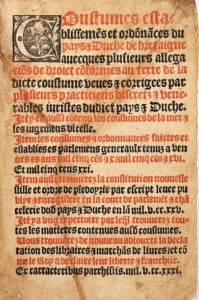 Coustumes esta
blissemēs et ordōnāces du
pays & Duche de bretaigne
avecques plusieurs allega
ciōs de droict cōformes au texte de la
dicte coustume veues & corrigees par
plusieurs practiciens discretz & vene
rables iuristes dudict pays & Duche.
Itē y est aussi cōtenu les coustumes de la mer &
les iugemens
Item les coustumes & ordonnances faictes et
establies es parlemens generaulx tenuz a ven
nes es ans mil cinq cēs &
et mil cinq cens xxi.
Item aussi trouuerez la constitution nouuelle
stille et ordre de pledoyrie par escript leuee pu
bliee & enregistree en la court de parlemēt & chā
celerie dud pays & Duche en lā mil.v.cc.xxv.
Itē ya vng repertoire par leql̄ trouuerez tou
tes les matieres contenues ausd coustumes.
Nous trouuerez de nouueau adiouxte la decla
ration des libraires & marchās de liures et cōe
me le Roy a declaire leur liberte & franchie.
Ex caracteribus parrhisiis.mil.v.cc.xxxi.